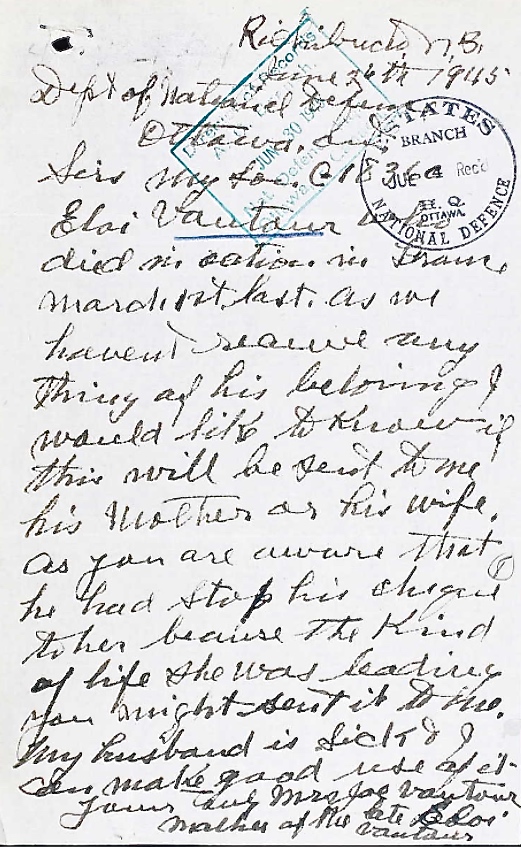 Richibucto N.B.
June 26th 1945
Dept of National Defense
Ottawa, Ont
Sirs my son. G 18360
Eloi Vautour who
died in action in
march 1st last. as we
havent receive any
thing of his belonings I
would like to Know if
this will be sent to me
his Mother or his wife.
as you are aware that
he had stop his cheque
to her because the Kind
of life she was leading
you might sent it to me.
My husband is sick & I
can make good use of it
yours truly Mrs Joe Vautour
mother of the late Eloi
Vautour
JUN 30 194
ESTATES
BRANCH
Rec'd
H. Q.
OTTAWA
NATIONAL DEFENCE
1